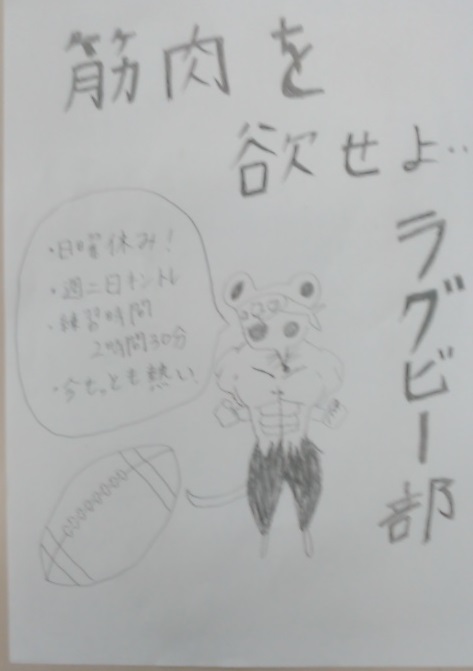 筋肉を
欲せよ‥
ラグビー部
・日曜休み！
・週二日キントレ
・練習時間
2時間30分
・今もっとも熱い！